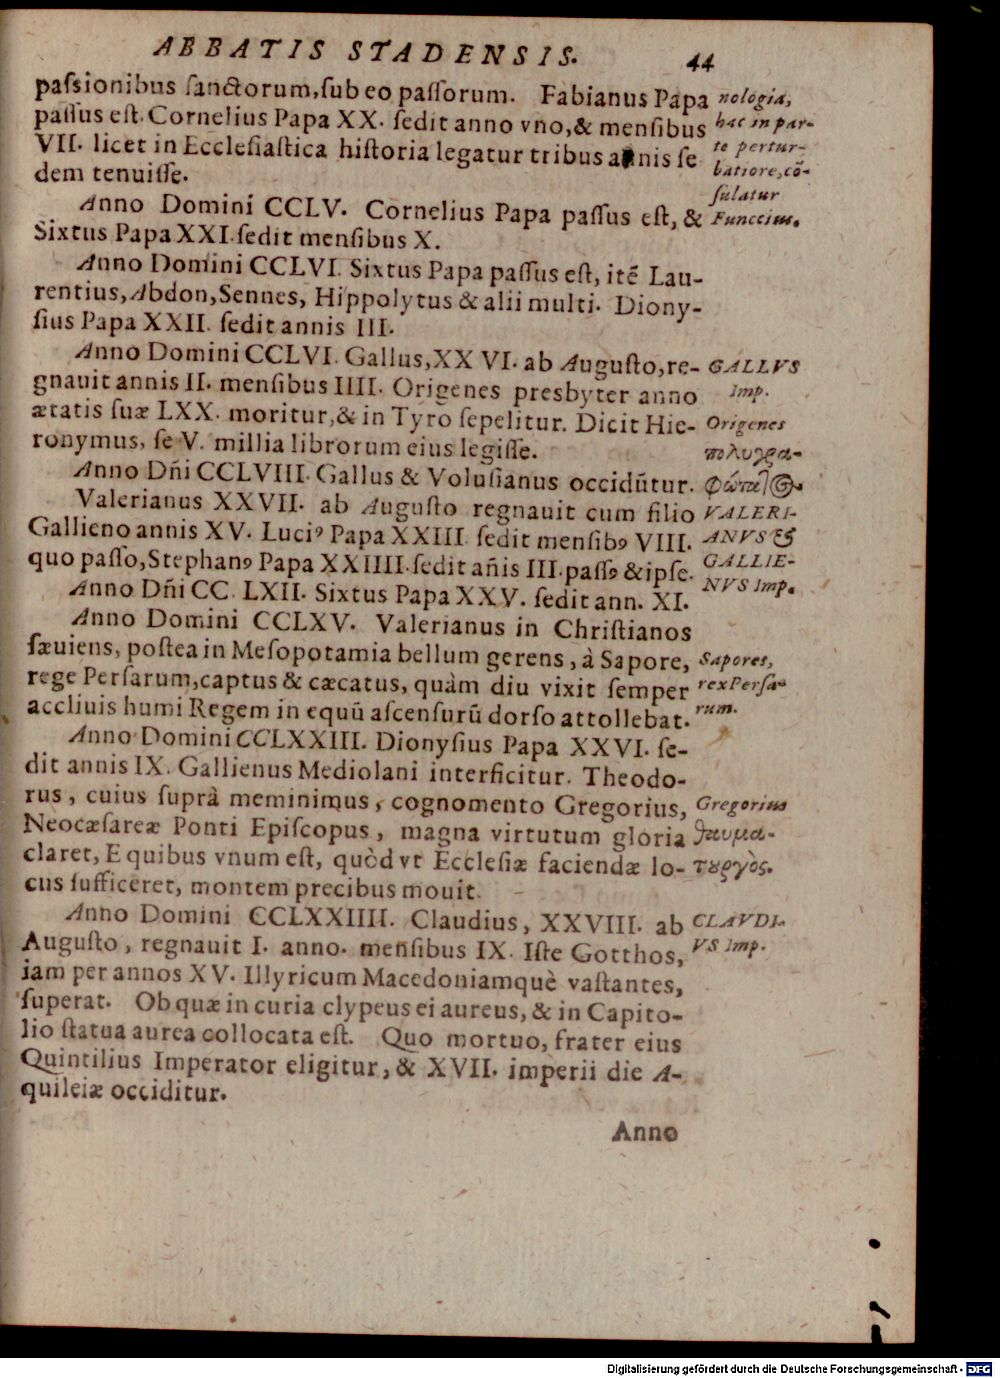 ABBATIS STADENSIS. 44
paſsionibus ſanctorum, ſub eo paſſorum. Fabianus Papa
paſſus eſt. Cornelius Papa XX. ſedit anno vno, & menſibus
VII. licet in Eccleſiaſtica hiſtoria legatur tribus annis ſe
dem tenuiſſe.
Anno Domini CCLV. Cornelius Papa paſſus eſt, &
Sixtus Papa XXI. ſedit menſibus X.
Anno Domini CCLVI. Sixtus Papa paſſus eſt, itē Lau-
rentius, Abdon, Sennes, Hippolytus & alii multi. Diony-
ſius Papa XXII. ſedit annis III.
Anno Domini CCLVI. Gallus, XXVI. ab Auguſto, re-
gnauit annis II. menſibus IIII. Origenes presbyter anno
ætatis ſuæ LXX. moritur, & in Tyro ſepelitur. Dicit Hie-
ronymus, ſe V. millia librorum eius legiſſe.
Anno Dñi CCLVIII. Gallus & Voluſianus occidūtur.
Valerianus XXVII. ab Auguſto regnauit cum filio
Gallieno annis XV. Luciꝰ Papa XXIII. ſedit menſibꝰ VIII.
quo paſſo, Stephanꝰ Papa XXIIII. ſedit añis III. paſſꝰ & ipſe.
Anno Dñi CC. LXII. Sixtus Papa XXV. ſedit ann. XI.
Anno Domini CCLXV. Valerianus in Chriſtianos
ſæuiens, poſtea in Meſopotamia bellum gerens, à Sapore,
rege Perſarum, captus & cæcatus, quàm diu vixit ſemper
accliuis humi Regem in equū aſcenſurū dorſo attollebat.
Anno Domini CCLXXIII. Dionyſius Papa XXVI. ſe-
dit annis IX. Gallienus Mediolani interficitur. Theodo-
rus, cuius ſuprà meminimus, cognomento Gregorius,
Neocæſareæ Ponti Epiſcopus, magna virtutum gloria
claret, E quibus vnum eſt, quòd vt Eccleſiæ faciendæ lo-
cus ſufficeret, montem precibus mouit.
Anno Domini CCLXXIIII. Claudius, XXVIII. ab
Auguſto, regnauit I. anno. menſibus IX. Iſte Gotthos,
iam per annos XV. Illyricum Macedoniamquè vaſtantes,
ſuperat. Ob quæ in curia clypeus ei aureus, & in Capito-
lio ſtatua aurea collocata eſt. Quo mortuo, frater eius
Quintilius Imperator eligitur, & XVII. imperii die A-
quileiæ occiditur.
Anno
nologia,
hac in par-
te pertur-
batiore, cō-
ſulatur
Funccius.
GALLVS
Imp.
Origenes
πολυγρα-
φώτατος.
VALERI-
ANVS &
GALLIE-
NVS Imp.
Sapores,
rex Perſa-
rum.
Gregorius
θαυμα-
τουργὸς.
CLAVDI-
VS Imp.
Digitalisierung gefördert durch die Deutsche Forschungsgemeinschaft - DFG